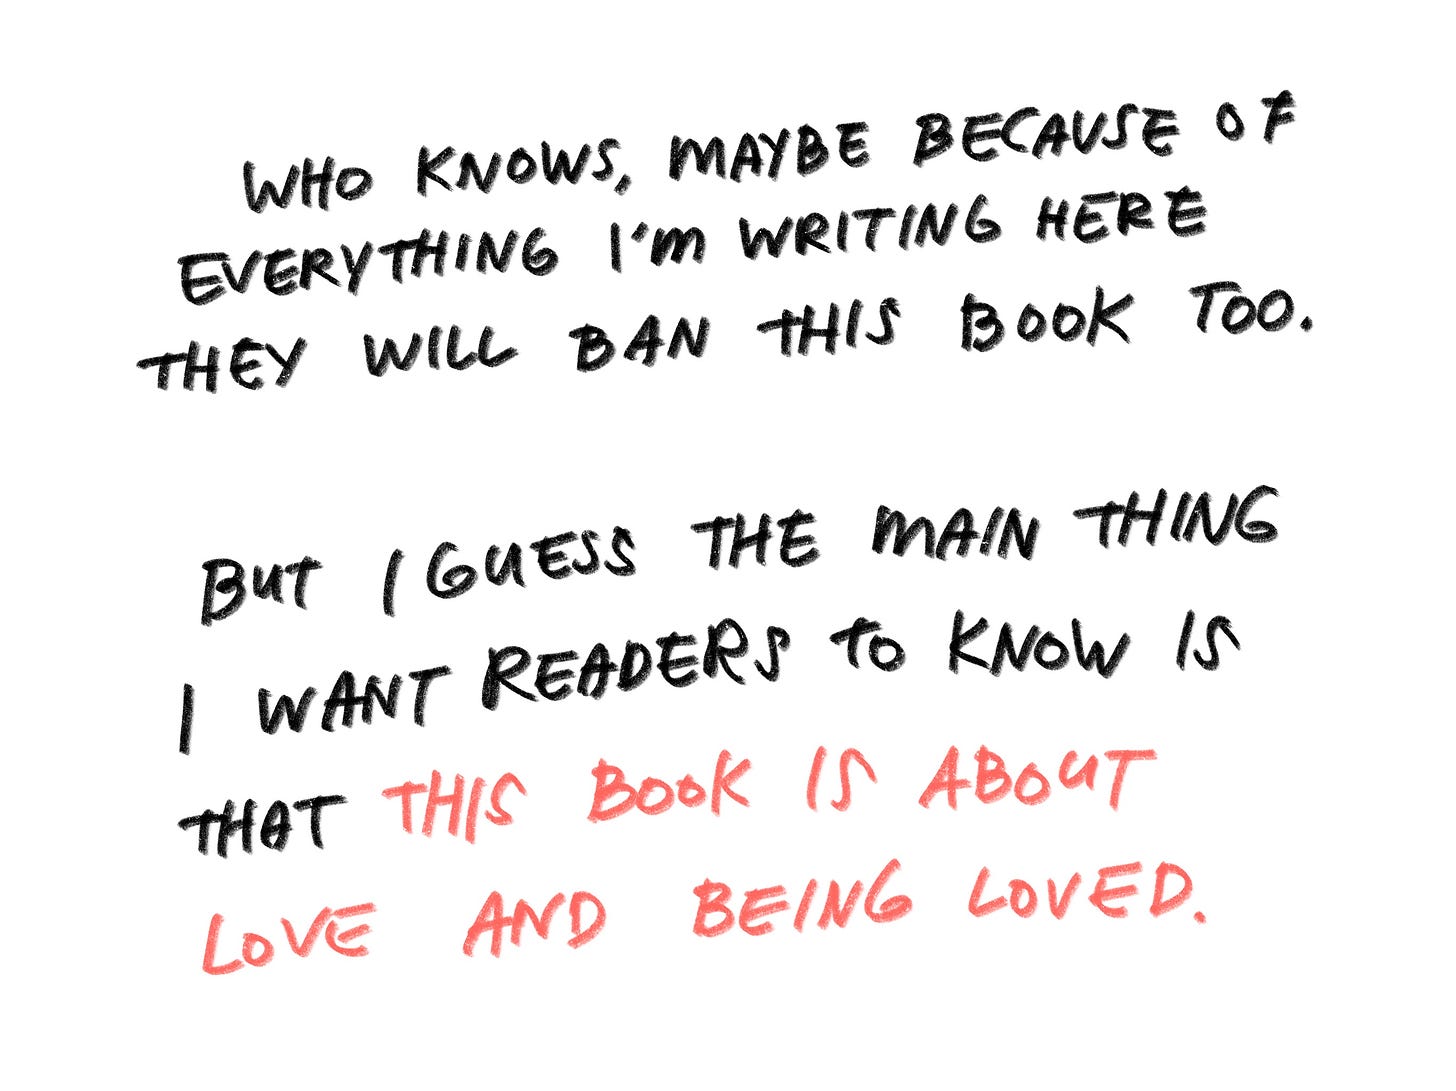 WHO KNOWS, MAYBE BECAUSE OF
EVERYTHING I'M WRITING HERE
THEY WILL BAN THIS BOOK TOO.
BUT I GUESS THE MAIN THING
I WANT READERS TO KNOW IS
THAT THIS BOOK IS ABOUT
LOVE AND BEING LOVED.